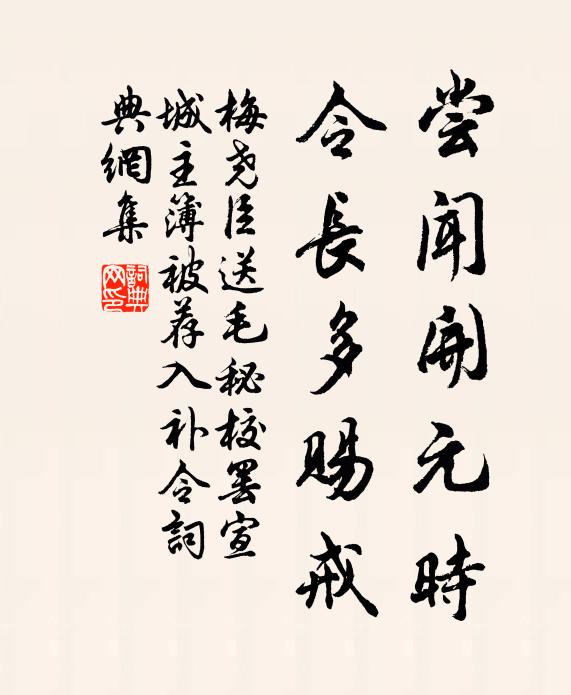 尝闻開元時
令長多赐戒
梅尧臣送毛秘校罢宣
城主簿被荐入补令詞
典網集
詞典网印